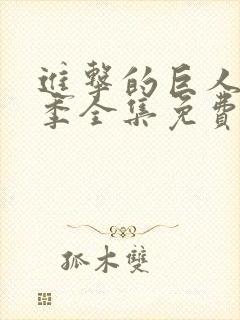 進擊的巨人
季全集免費
孤木雙